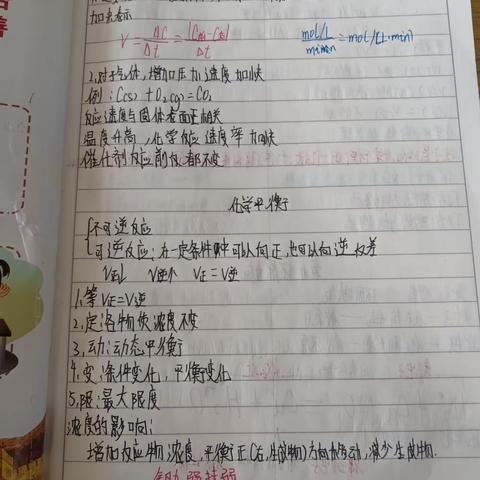 加去表示
V = ΔC/Δt = |C(末)-C(始)|/Δt mol/L/min = mol/(L·min)
2,对于气体,增加压力,速度加快
例:C(s) + O₂(g) = CO₂
反应速度与固体表面正相关
温度升高,化学反应速度率加快
催化剂反应前后都不变
化学平衡
不可逆反应
可逆反应:在一定条件下可以向正,也可以向逆
V正↓ V逆↑ V正=V逆
1,等V正=V逆
2,定:各物质浓度不变
3,动:动态平衡
4,变:条件变化,平衡变化
5,限:最大限度
浓度的影响:
增加反应物浓度,平衡正(右,生成物)方向移动,减少生成物.